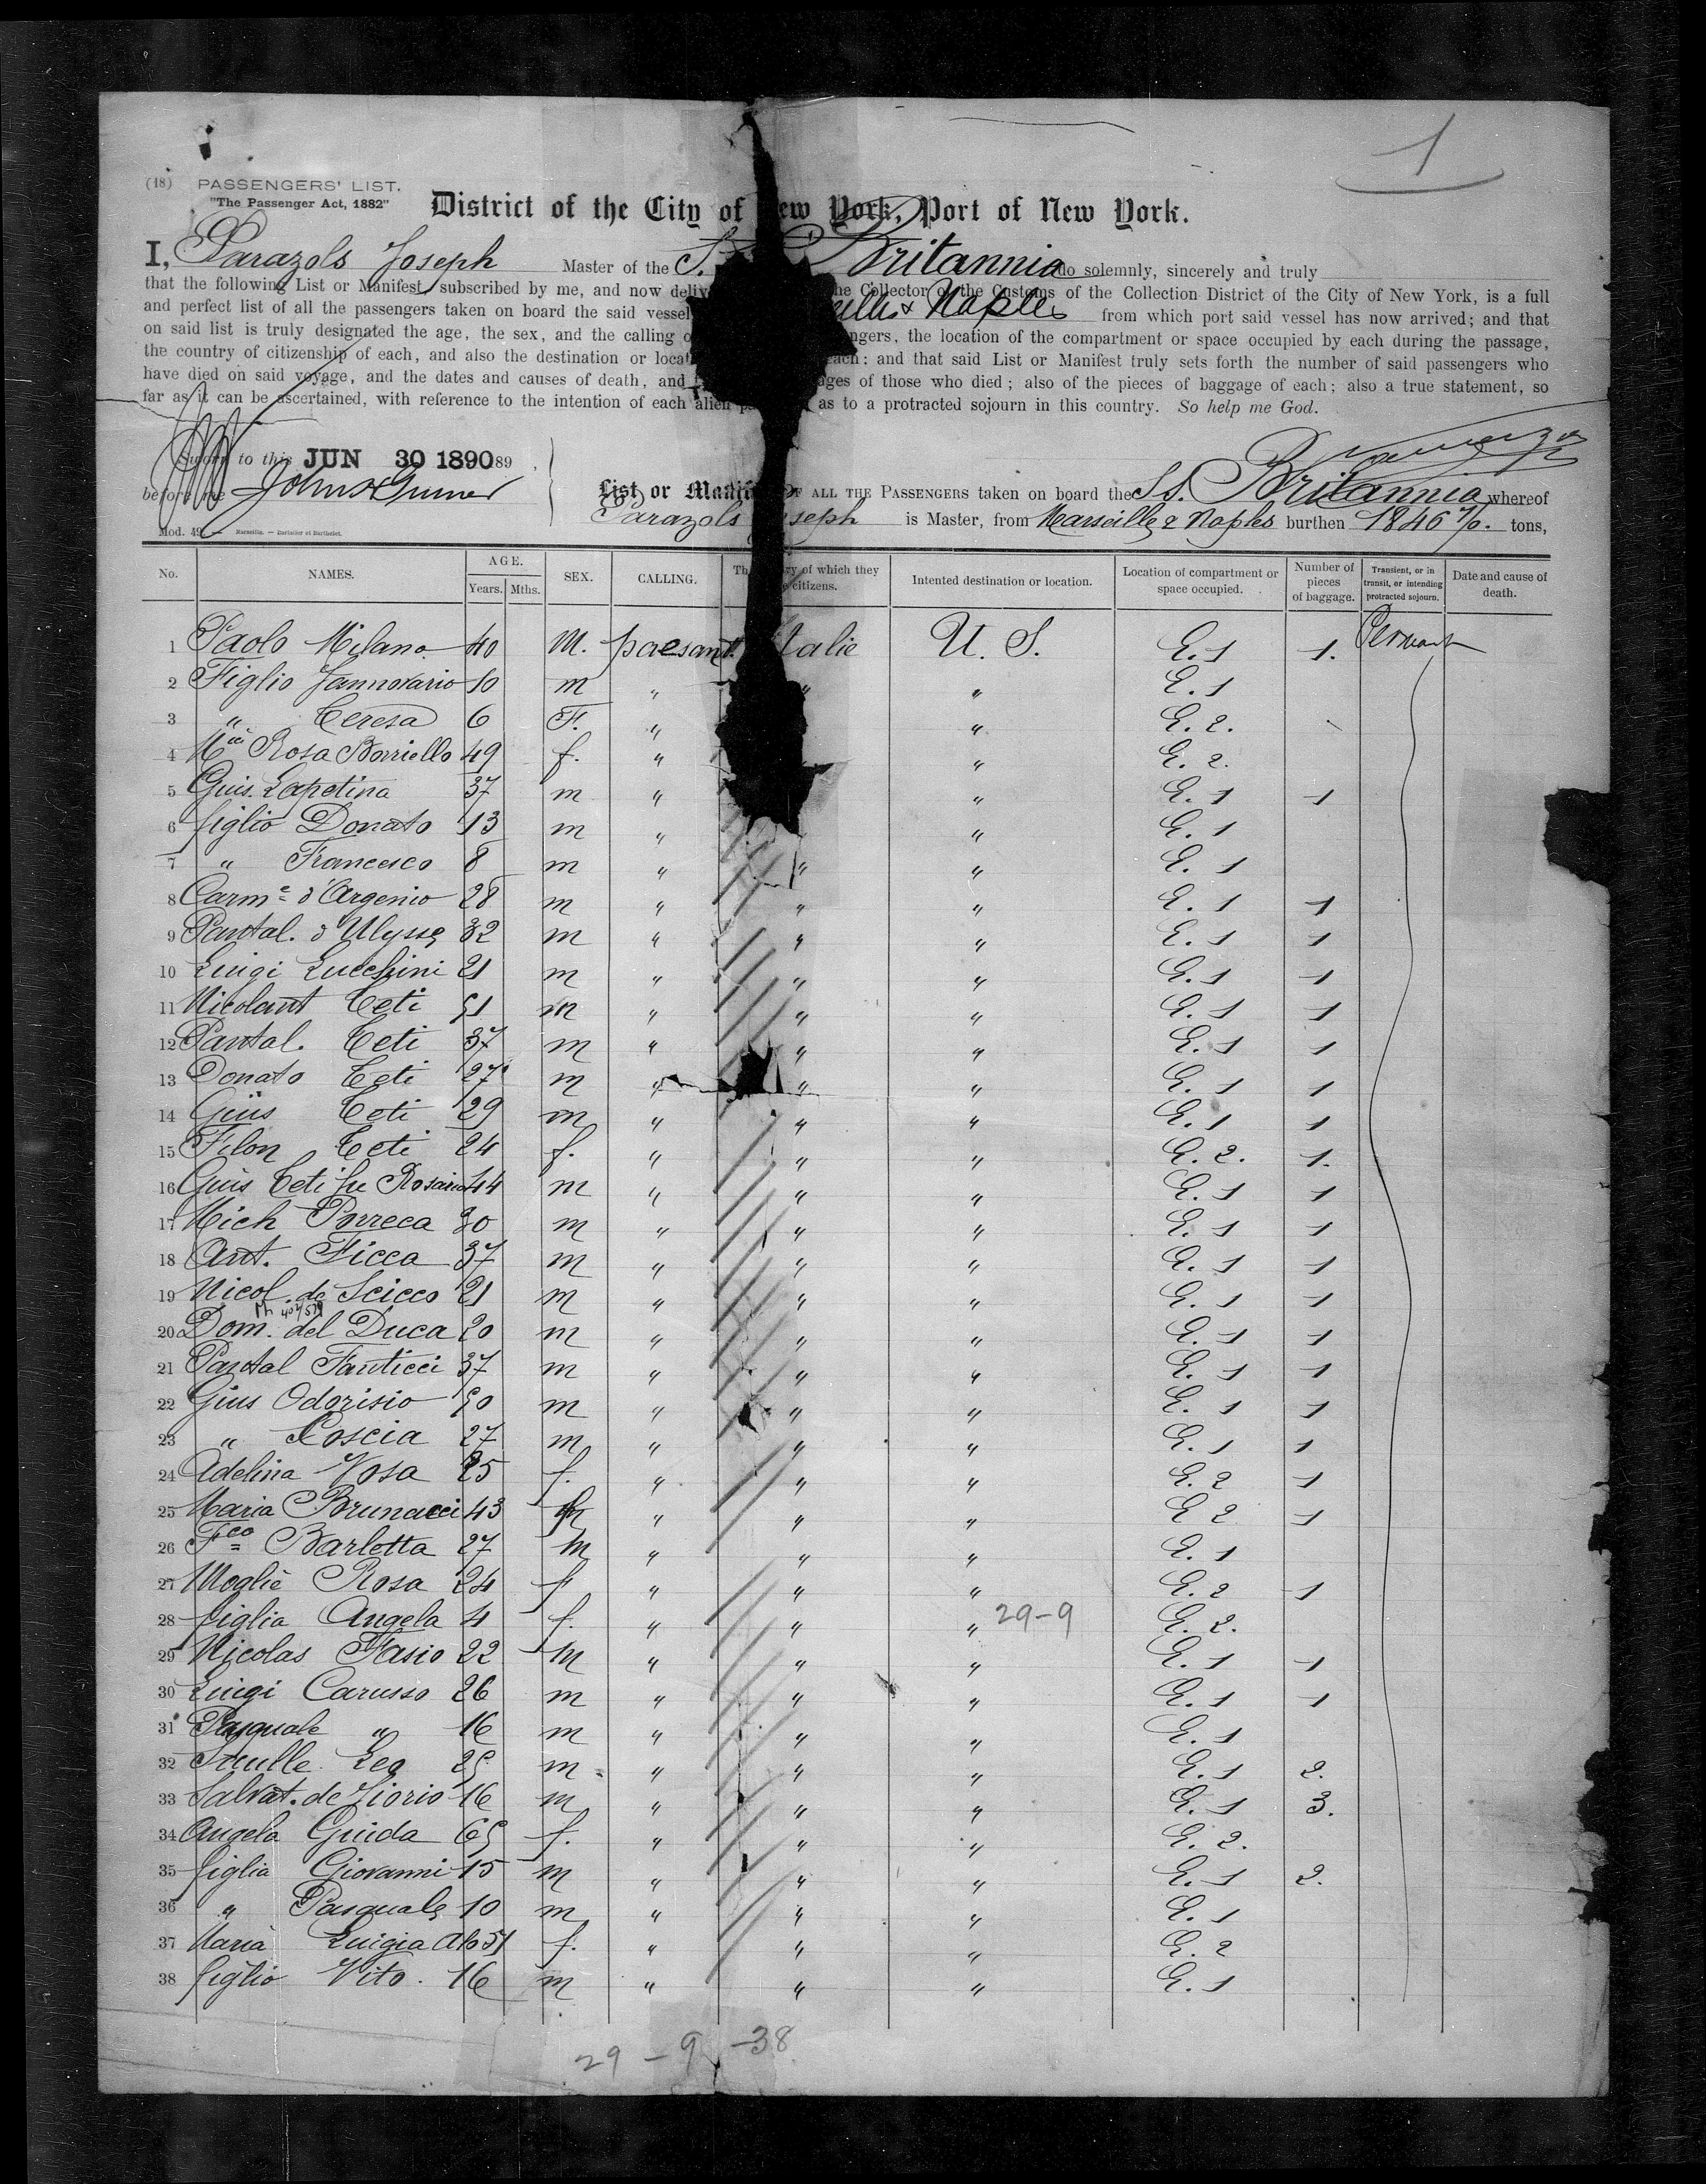 1
(18) PASSENGERS' LIST.
"The Passenger Act, 1882"
District of the City of New York, Port of New York.
I, Parazols Joseph Master of the S. Britannia do solemnly, sincerely and truly
that the following List or Manifest, subscribed by me, and now deliv he Collector of the Customs of the Collection District of the City of New York, is a full
and perfect list of all the passengers taken on board the said vessel & Naples from which port said vessel has now arrived; and that
on said list is truly designated the age, the sex, and the calling o ngers, the location of the compartment or space occupied by each during the passage,
the country of citizenship of each, and also the destination or locat each: and that said List or Manifest truly sets forth the number of said passengers who
have died on said voyage, and the dates and causes of death, and ages of those who died; also of the pieces of baggage of each; also a true statement, so
far as it can be ascertained, with reference to the intention of each alien as to a protracted sojourn in this country. So help me God.
Sworn to this JUN 30 1890 89
before me
List or Manif OF ALL THE PASSENGERS taken on board the S.S. Britannia whereof
Parazols Joseph is Master, from Marseilles & Naples burthen 1846 tons,
Mod. 49 — Marseille. — Barlatier et Barthelet.
No. NAMES. AGE. Years. Mths. SEX. CALLING. The country of which they are citizens. Intented destination or location. Location of compartment or space occupied. Number of pieces of baggage. Transient, or in transit, or intending protracted sojourn. Date and cause of death.
1 Paolo Milano 40 M. paesant. Italie U. S. E. 1 1.
2 Figlio Jannorario 10 m " " " E. 1
3 " Teresa 6 F. " " E. 2.
4 Mia Rosa Borriello 49 f. " " E. 2.
5 Guis. Lapetina 37 m " " E. 1 1
6 figlio Donato 13 m " " E. 1
7 " Francesco 8 m " " " E. 1
8 Carme d'Argenio 28 m " " " E. 1 1
9 Pantal. d'Ulysse 32 m " " " E. 1 1
10 Luigi Lucchini 21 m " " " E. 1 1
11 Nicolant Teti 51 m " " " E. 1 1
12 Pantal. Teti 37 m " " " E. 1 1
13 Donato Teti 27 m " " " E. 1 1
14 Guis Teti 29 m " " " E. 1 1
15 Filon Teti 24 f. " " " E. 2. 1.
16 Guis Teti fu Rosario 44 m " " " E. 1 1
17 Mich Porreca 30 m " " " E. 1 1
18 Ant. Ficca 37 m " " " E. 1 1
19 Nicol. de Scicco 21 m " " " E. 1 1
20 Dom. del Duca 20 m " " " E. 1 1
21 Pantal Fanticci 37 m " " " E. 1 1
22 Gius Odorisio 50 m " " " E. 1 1
23 " Coscia 27 m " " " E. 1 1
24 Adelina Vosa 25 f. " " " E. 2 1
25 Maria Brunacci 43 f " " " E 2 1
26 Fco Barlotta 27 m " " " E. 1
27 Moglie Rosa 24 f " " " E. 2 1
28 figlia Angela 4 f. " " " 29-9 E. 2.
29 Nicolas Fasio 22 m " " " E. 1 1
30 Luigi Carusso 26 m " " " E. 1 1
31 Pasquale " 16 m " " " E. 1
32 Leo 25 m " " " E. 1 2.
33 Salvat. de Jiorio 16 m " " " E. 1 3.
34 Angela Guida 65 f. " " " E. 2.
35 figlia Giovanni 15 m " " " E. 1 2.
36 " Pasquale 10 m " " " E. 1
37 Maria Luigia 51 f. " " " E. 2
38 figlio Vito. 16 m " " " E. 1
29 - 9 - 38